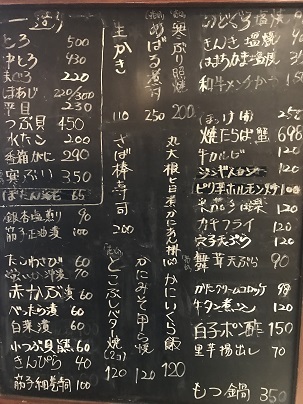 一造り
とろ 500
中とろ 430
まぐろ 220
ほあじ 220/350
平目 230
つぶ貝 450
水たこ 200
香箱がに 290
寒ぶり 350
65
銀杏塩煎り 90
筋子正油漬 100
たこわさび 60
70
赤かぶ漬 60
べったら漬 60
白菜漬 60
小つぶ貝煮 60
きんぴら 40
筋子細巻桐 100
生かき 110
めばる煮付 250
寒ぶり照焼 200
さば棒寿司 200
とこぶしバター焼(2コ) 120
かにみそ甲ら焼 120
丸大根と旨煮かにあん掛け
かにいくら飯 120
きんき塩焼
はちがい塩焼
和牛メンチかつ
ほっけ(開) 250
焼たらば蟹 698
牛カルビ 120
ピリ辛ホルモン炒 100
120
カキフライ 120
穴子天ぷら 120
舞茸天ぷら 90
かにクリームコロッケ 98
牛タン煮こごり 120
白子ポン酢 150
里芋揚出し 70
もつ鍋 350